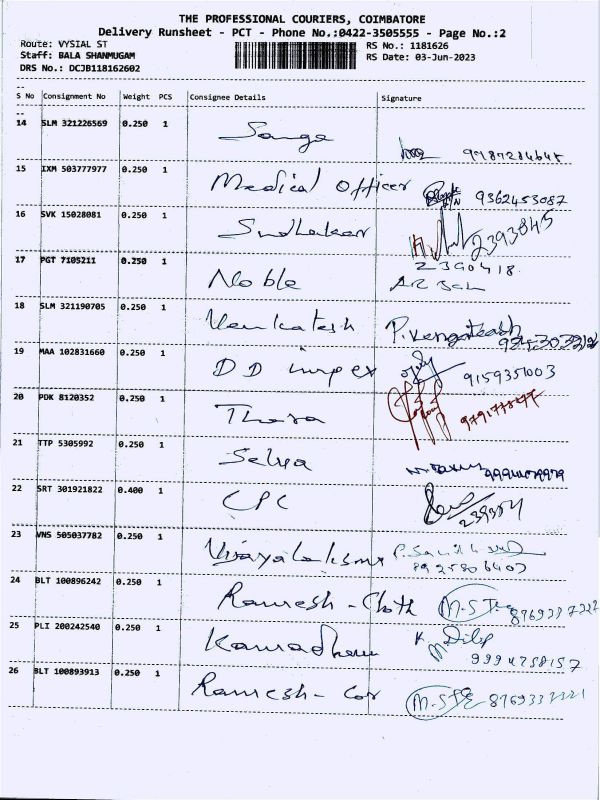 THE PROFESSIONAL COURIERS, COIMBATORE
Delivery Runsheet - PCT - Phone No.:0422-3505555 - Page No.:2
Route: VYSIAL ST RS No.: 1181626
Staff: BALA SHANMUGAM RS Date: 03-Jun-2023
DRS No.: DCJB118162602
S No Consignment No Weight PCS Consignee Details Signature
14 SLM 321226569 0.250 1
15 IXM 503777977 0.250 1 Medical Officer 9362453087
16 SVK 15028081 0.250 1 Sudhakar 2393845
17 PGT 7105211 0.250 1 Noble 2390418
18 SLM 321190705 0.250 1 Venkatesh P.Vengatesh
19 MAA 102831660 0.250 1 DD impex 9159351003
20 PDK 8120352 0.250 1 Thara
21 TTP 5305992 0.250 1 Selva
22 SRT 301921822 0.400 1 CPC
23 VNS 505037782 0.250 1 8925806403
24 BLT 100896242 0.250 1 Ramesh - Cloth M.S
25 PLI 200242540 0.250 1 K Dilip
26 BLT 100893913 0.250 1 Ramesh - Cor M.S